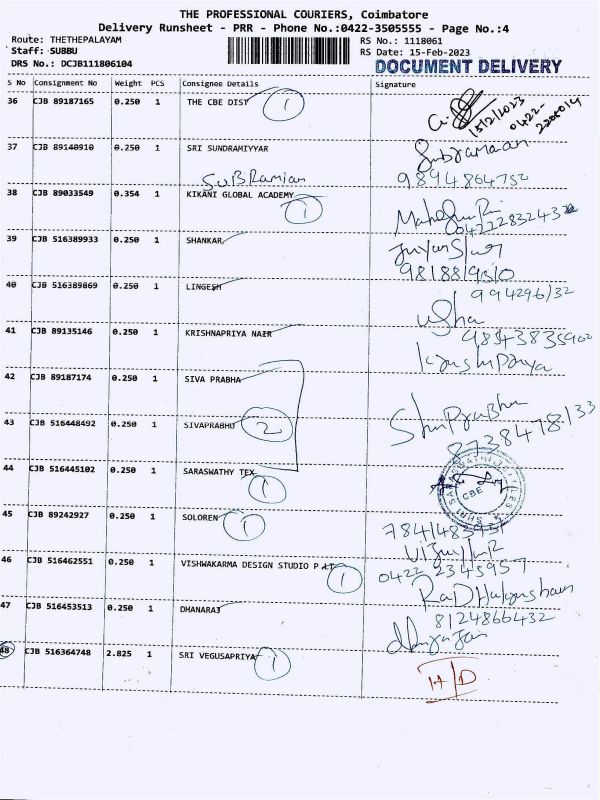 THE PROFESSIONAL COURIERS, Coimbatore
Delivery Runsheet - PRR - Phone No.:0422-3505555 - Page No.:4
Route: THETHEPALAYAM
RS No.: 1118061
Staff: SUBBU
RS Date: 15-Feb-2023
DRS No.: DCJB111806104
DOCUMENT DELIVERY
S No Consignment No Weight PCS Consignee Details Signature
36 CJB 89187165 0.250 1 THE CBE DIST 1
15/2/2023
0422-
37 CJB 89140910 0.250 1 SRI SUNDRAMIYYAR
Subramaan
SUBRamian
9894864752
38 CJB 89033549 0.354 1 KIKANI GLOBAL ACADEMY 1
39 CJB 516389933 0.250 1 SHANKAR
40 CJB 516389869 0.250 1 LINGESH
994296132
Usha
41 CJB 89135146 0.250 1 KRISHNAPRIYA NAIR
42 CJB 89187174 0.250 1 SIVA PRABHA
43 CJB 516448492 0.250 1 SIVAPRABHU 2
8738478133
44 CJB 516445102 0.250 1 SARASWATHY TEX 1
CBE
45 CJB 89242927 0.250 1 SOLOREN 1
46 CJB 516462551 0.250 1 VISHWAKARMA DESIGN STUDIO P LT 1
0422 2345957
47 CJB 516453513 0.250 1 DHANARAJ
8124866432
48 CJB 516364748 2.825 1 SRI VEGUSAPRIYA 1
H/D